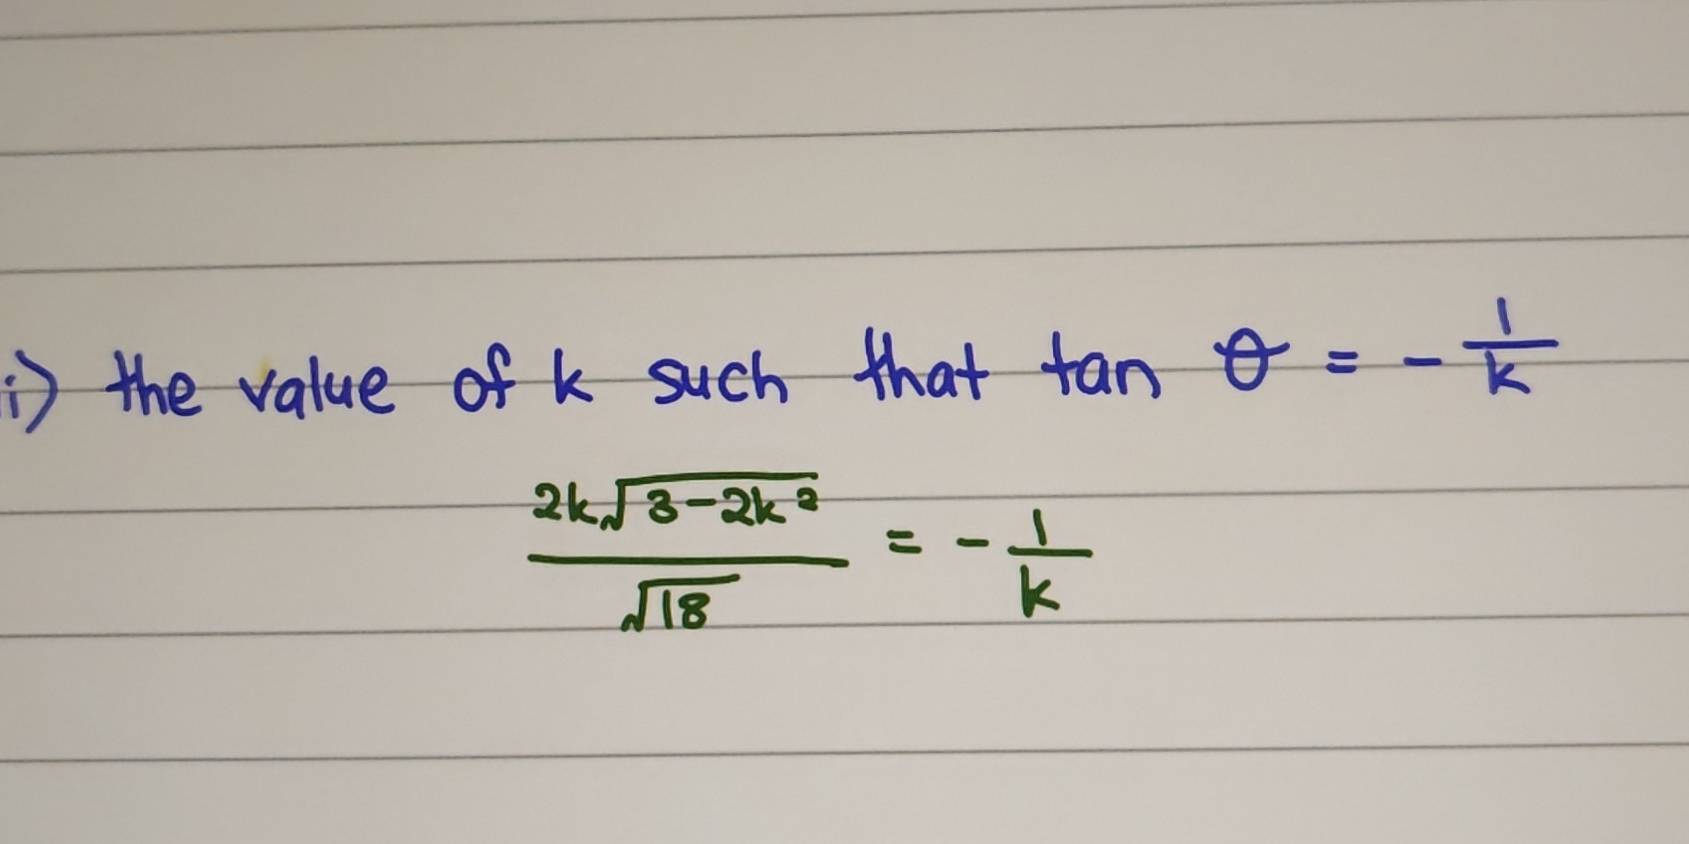 i) the value of k such that tan θ = - 1/k
2k√(3-2k²) / √18 = - 1/k